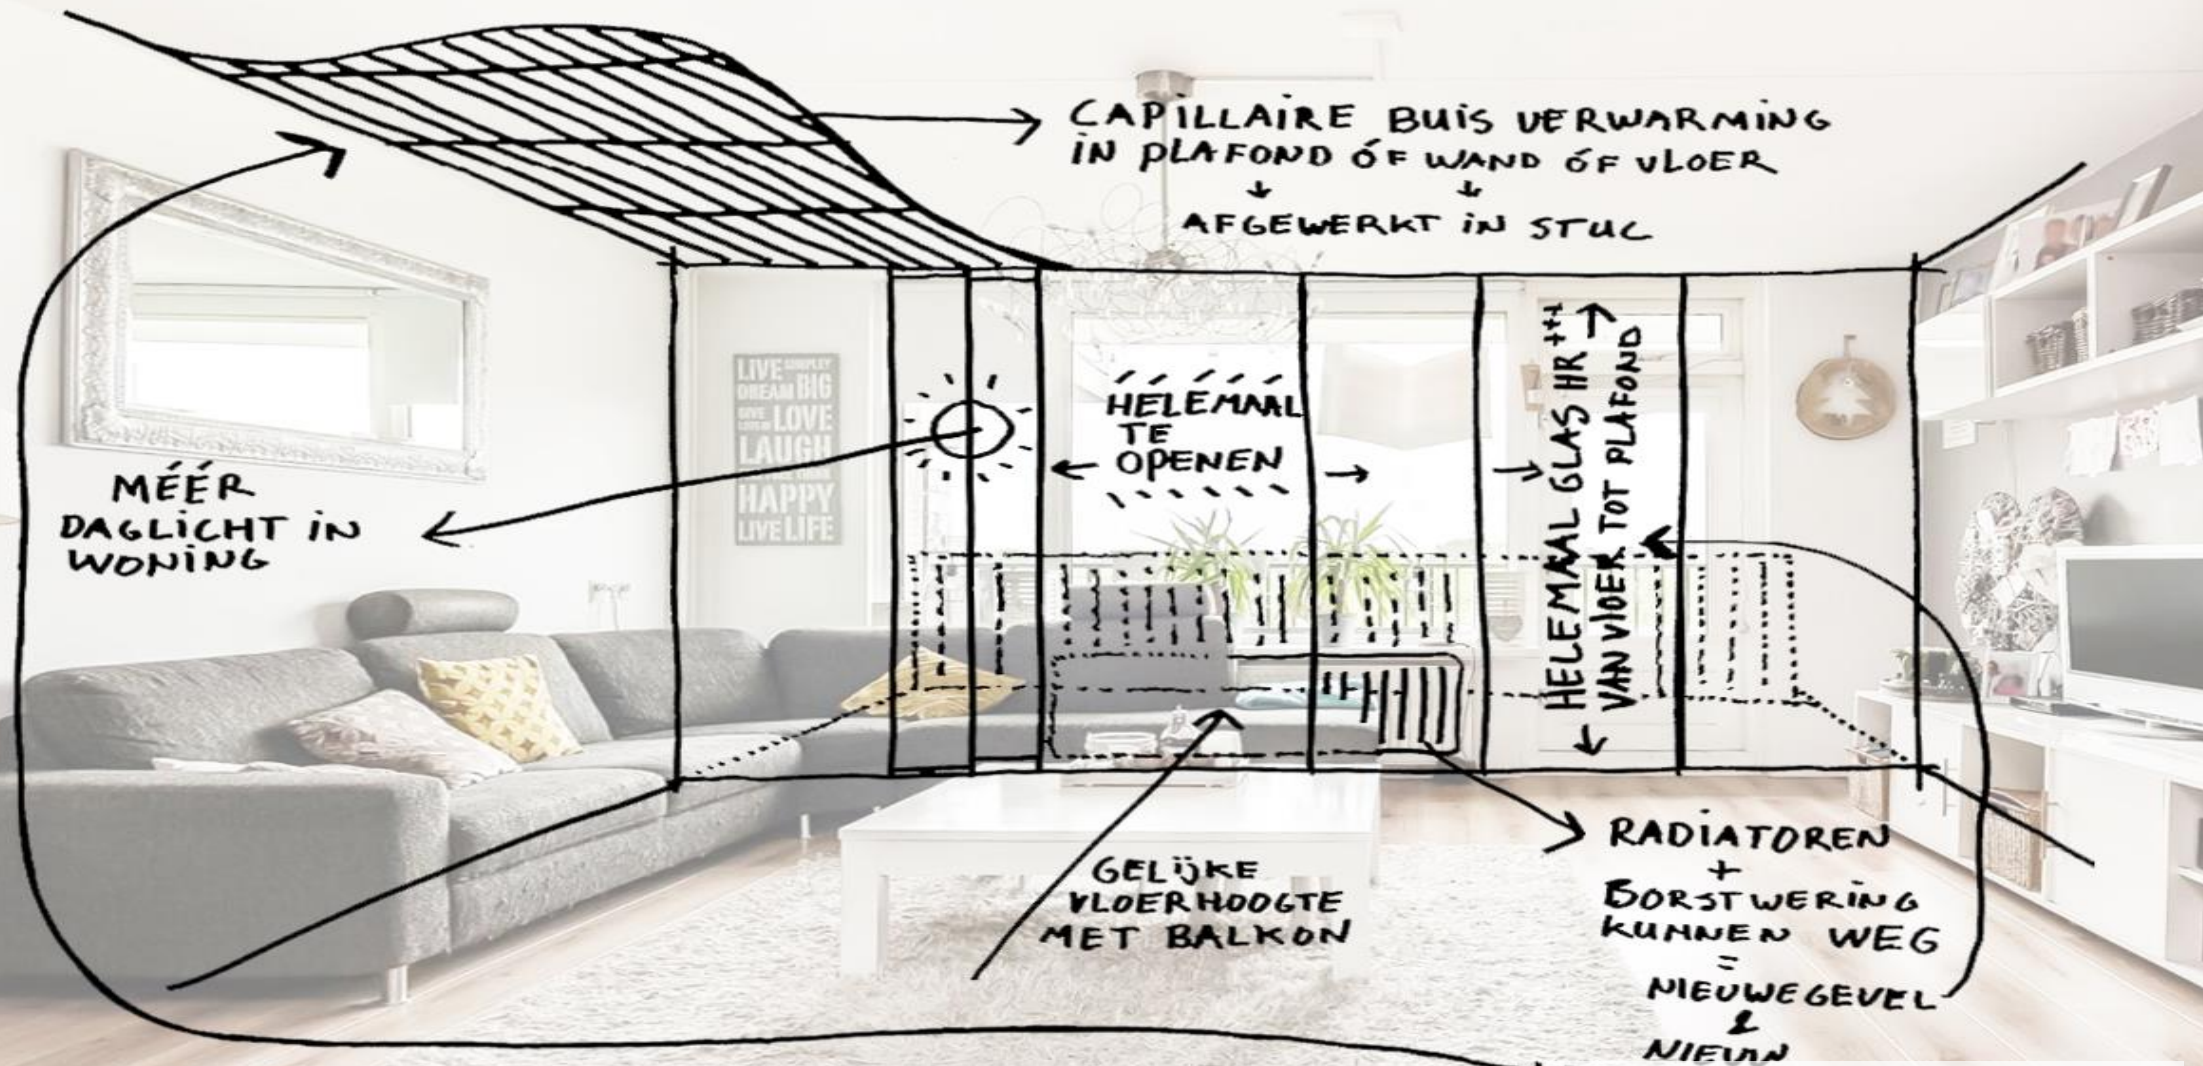 CAPILLAIRE BUIS VERWARMING
IN PLAFOND ÓF WAND ÓF VLOER
AFGEWERKT IN STUC
LIVE SIMPLEY
DREAM BIG
GIVE LOVE
LAUGH
HAPPY
LIVE LIFE
HELEMAAL
TE
OPENEN
HELEMAAL GLAS HR+++
VAN VLOER TOT PLAFOND
MÉÉR
DAGLICHT IN
WONING
GELIJKE
VLOERHOOGTE
MET BALKON
RADIATOREN
+
BORSTWERING
KUNNEN WEG
=
NIEUWE GEVEL
&